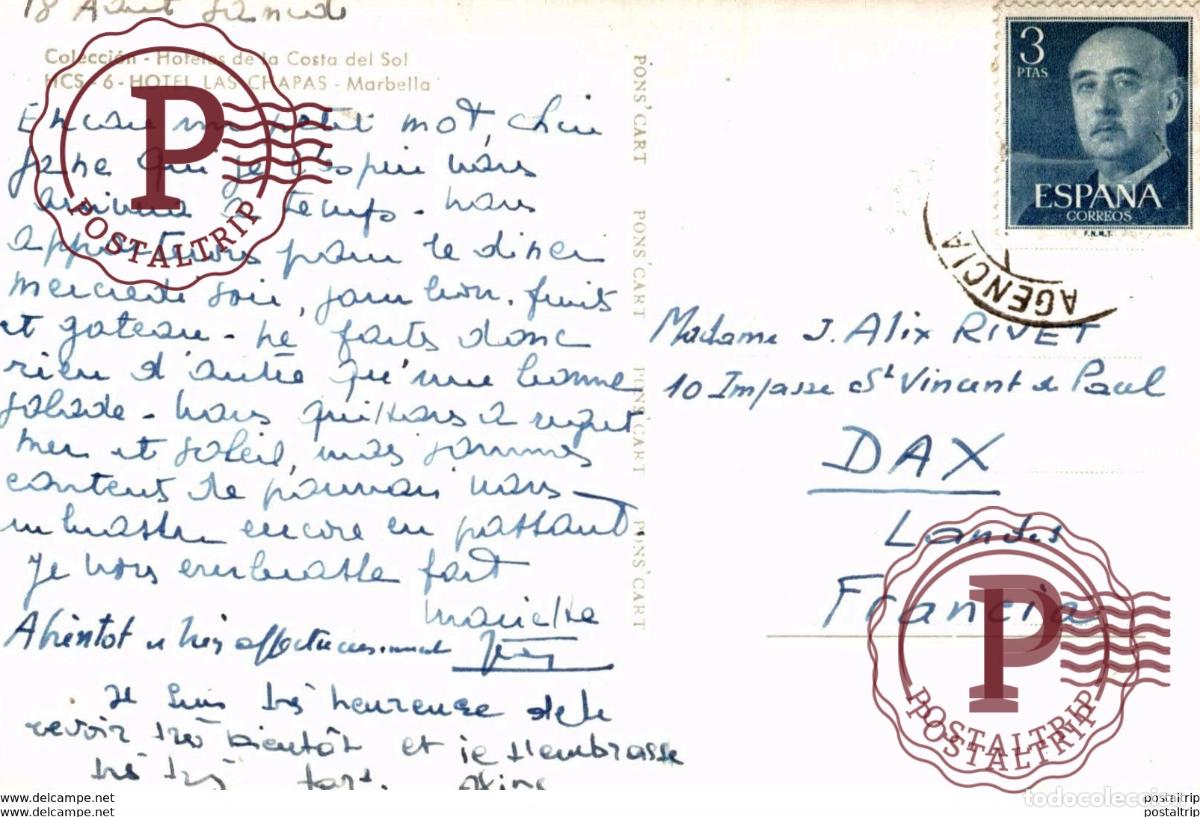 18 Août Samedi
Colección - Hoteles de la Costa del Sol
HCS - 6 - HOTEL LAS CHAPAS - Marbella
Encore un petit mot, chère
Jane qui je l'espère vous
arrivera à temps. Nous
apportons pour le diner
mercredi soir, jambon, fruits
et gateau. Ne faites donc
rien d'autre qu'une bonne
salade. Nous quittons à regret
mer et soleil, mais sommes
contents de pouvoir vous
embrasser encore en passant
Je vous embrasse fort
A bientot et très affectueusement
Je suis très heureuse de te
revoir très bientôt et je t'embrasse
très très fort.
PONS'CART PONS'CART PONS'CART PONS'CART
3
PTAS
ESPAÑA
CORREOS
F.N.M.T.
AGENCIA
Madame J. Alix RIVET
10 Impasse St Vincent de Paul
DAX
Landes
Francia
P
POSTALTRIP
P
POSTALTRIP
POSTALTRIP
todocoleccion
www.delcampe.net
postaltrip
www.delcampe.net
postaltrip